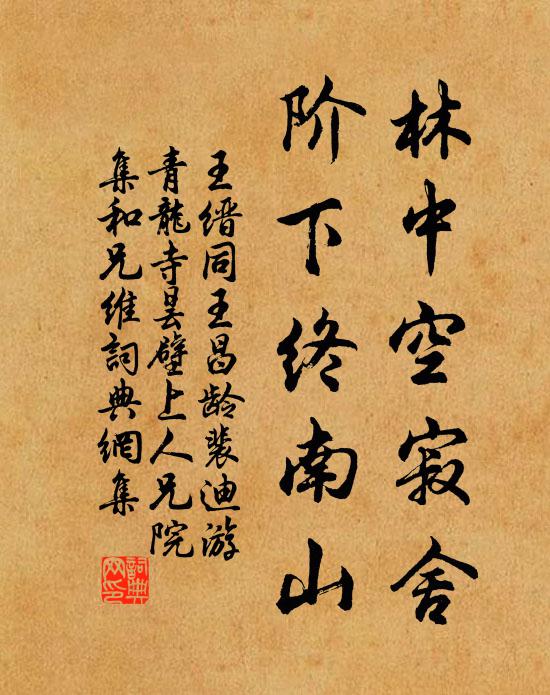 林中空寂舍
阶下终南山
王缙同王昌龄裴迪游
青龍寺昙壁上人兄院
集和兄维詞典網集
詞典
网印